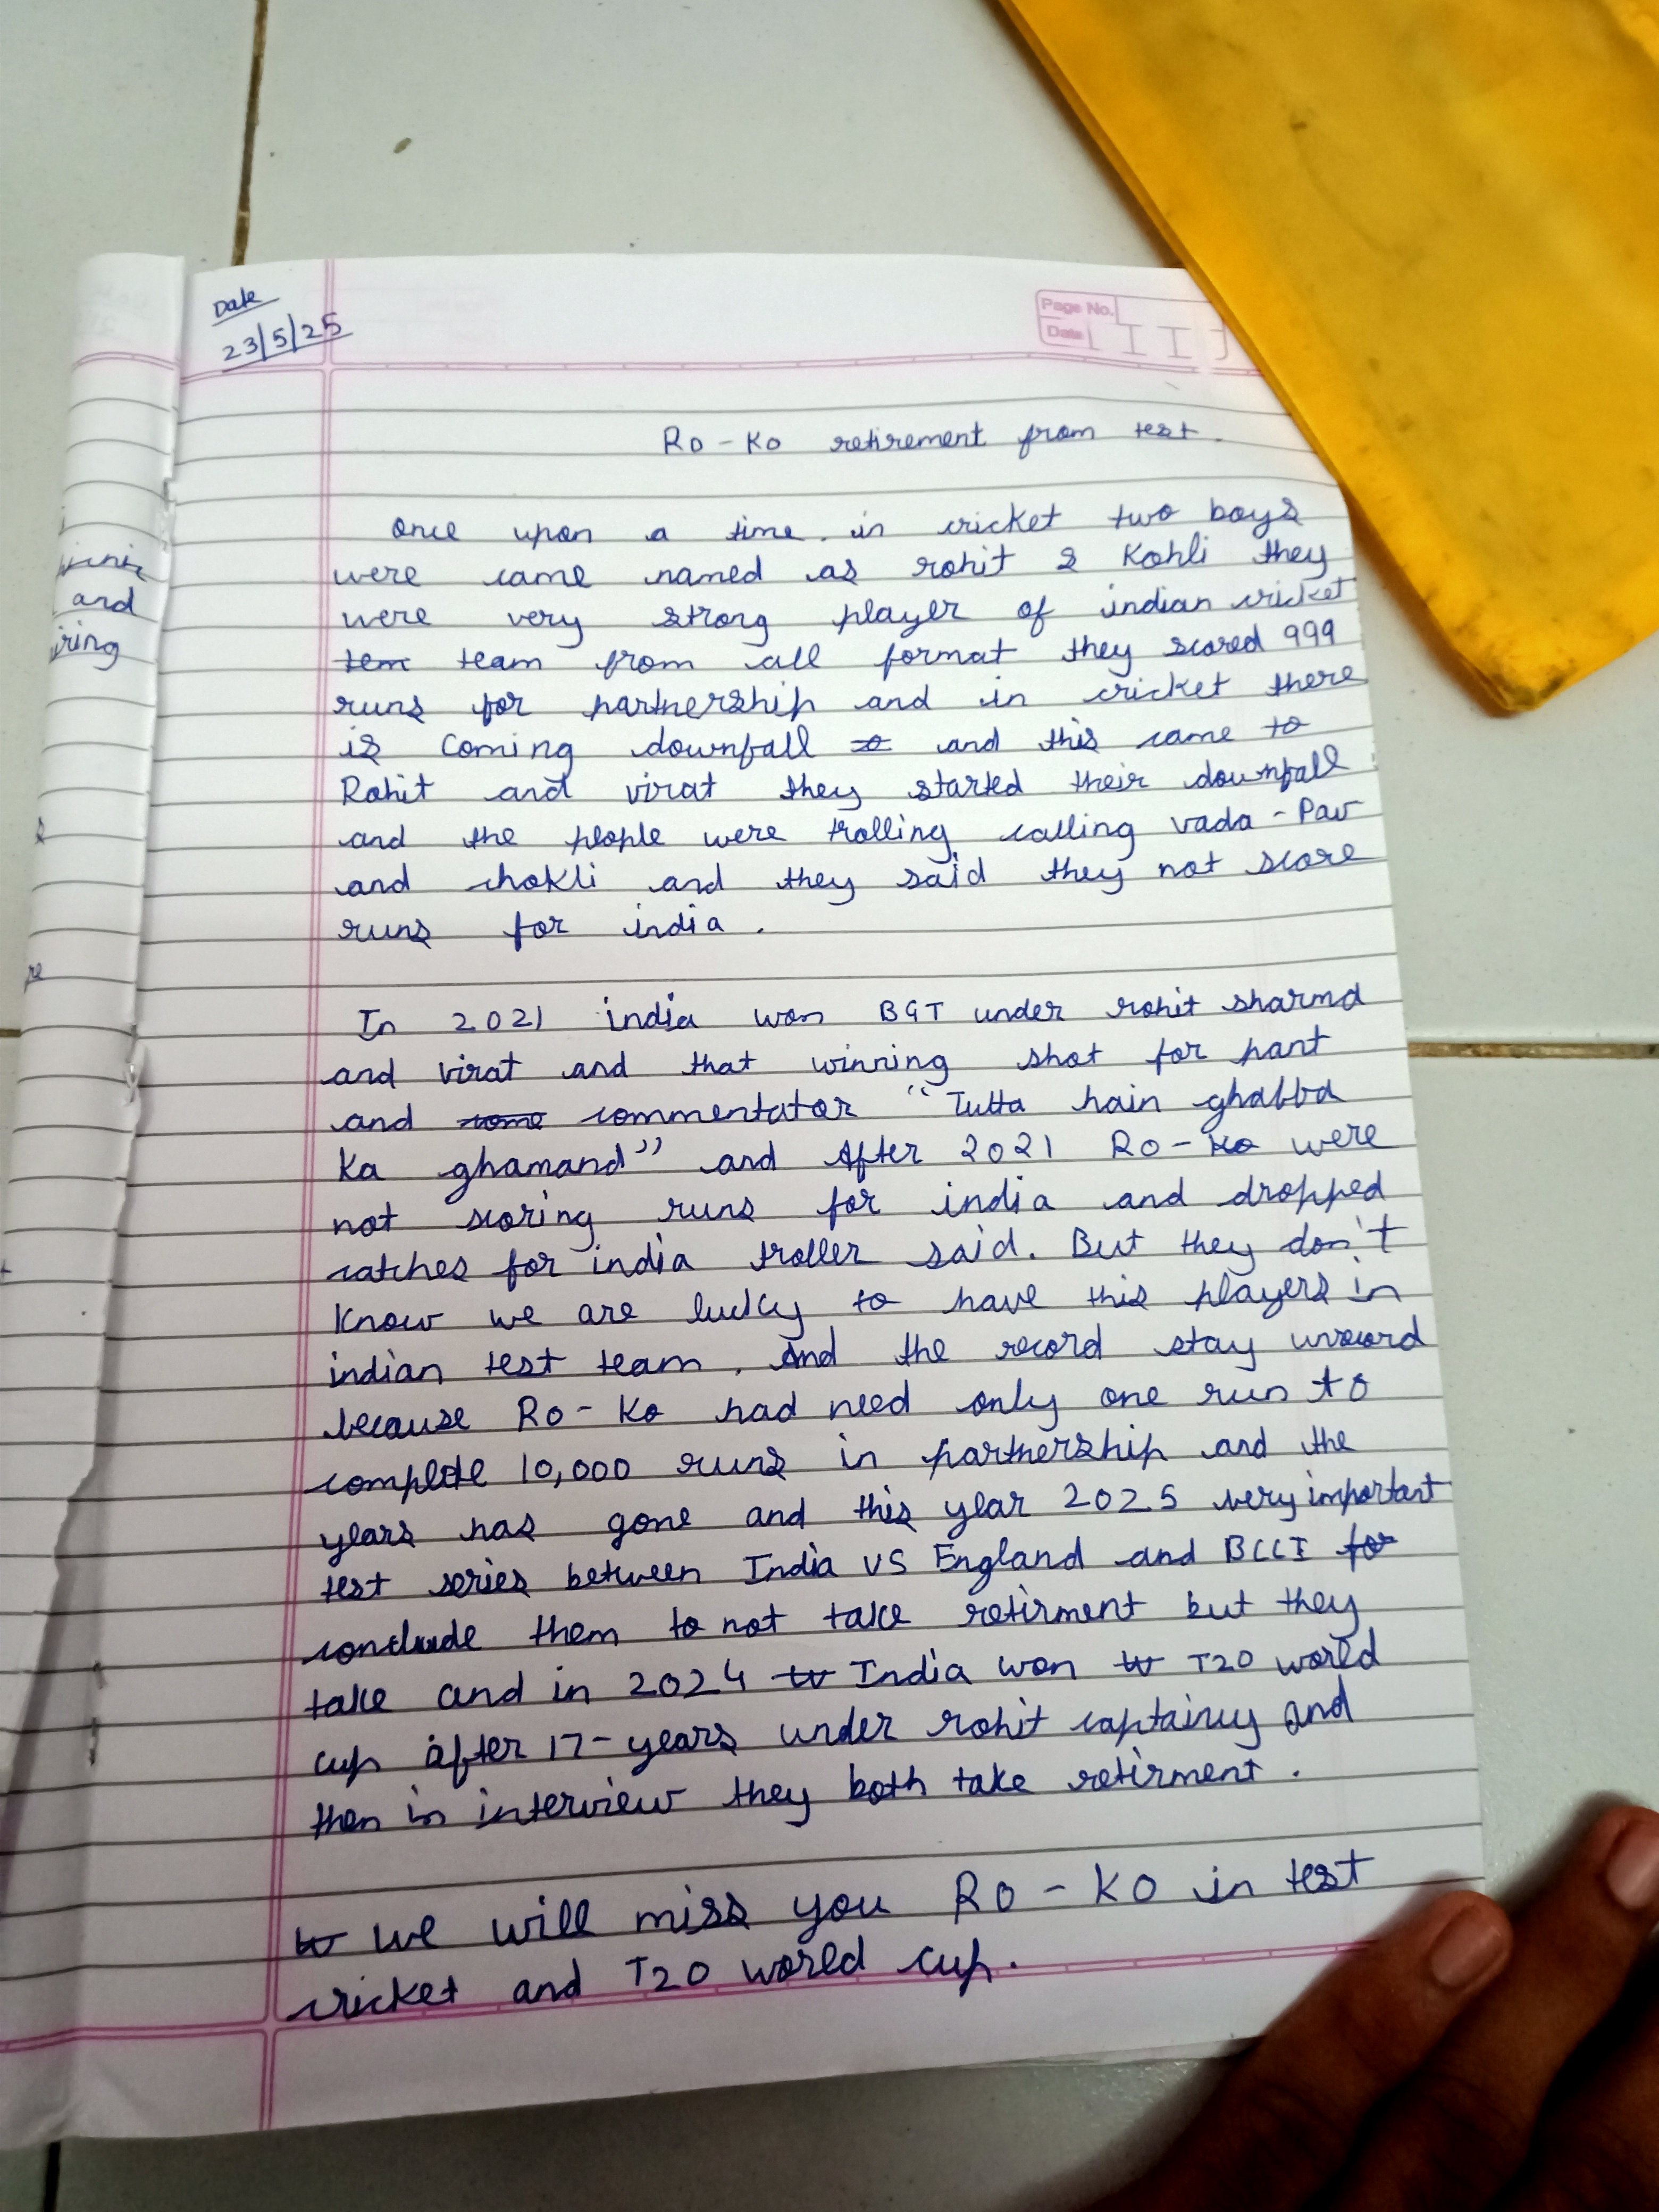 Date
23/5/25
Page No.
Date
Ro-Ko retirement from test.
once upon a time. in cricket two boys
were came named as rohit & Kohli they
were very strong player of indian cricket
tem team from all format they scored 999
runs for partnership and in cricket there
is coming downfall to and this came to
Rohit and virat they started their downfall
and the people were trolling calling vada-Pav
and chokli and they said they not score
runs for india.
In 2021 india won BGT under rohit sharma
and virat and that winning shot for pant
and come commentator "Tutta hain ghabba
Ka ghamand" and After 2021 Ro-Ko were
not scoring runs for india and dropped
catches for india troller said. But they don't
Know we are lucky to have this players in
indian test team. And the record stay
because Ro-Ko had need only one run to
complete 10,000 runs in partnership and the
years has gone and this year 2025 very important
test series between India VS England and BCCI for
conclude them to not take retirment but they
take and in 2024 w India won w T20 world
cup after 17-years under rohit captaincy and
then in interview they both take retirment.
w we will miss you Ro-KO in test
cricket and T20 world cup.
and
iring